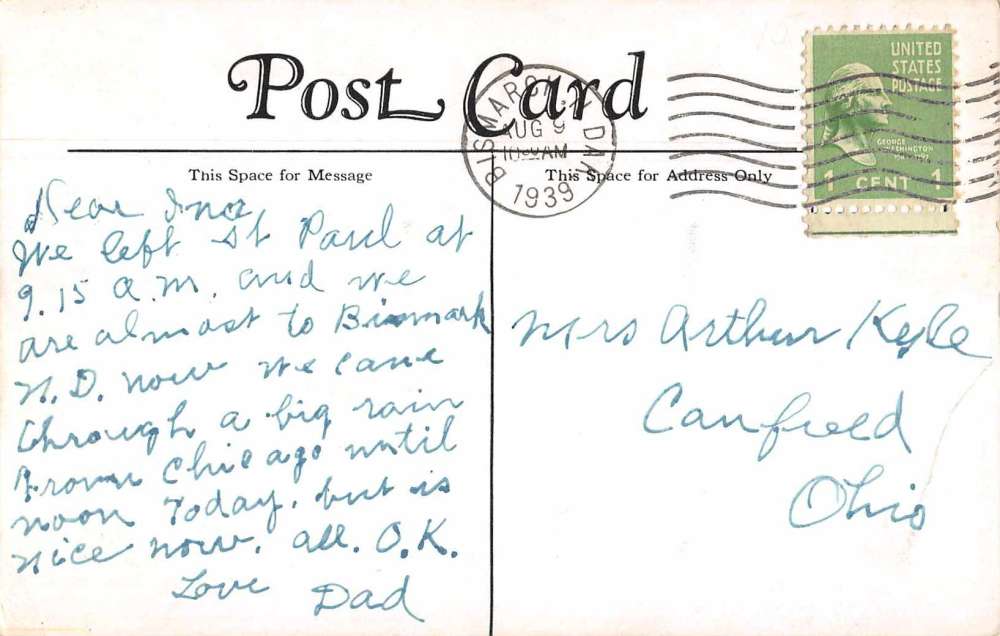 Post Card
BISMARCK N. DAK
AUG 9
10 AM
1939
UNITED
STATES
POSTAGE
GEORGE
WASHINGTON
1 CENT 1
This Space for Message
This Space for Address Only
Dear Inez,
We left St Paul at
9.15 a.m. and we
are almost to Bismark
N.D. now we came
through a big rain
from Chicago until
noon Today, but is
nice now. all. O.K.
Love Dad
Mrs Arthur Kyle
Canfield
Ohio